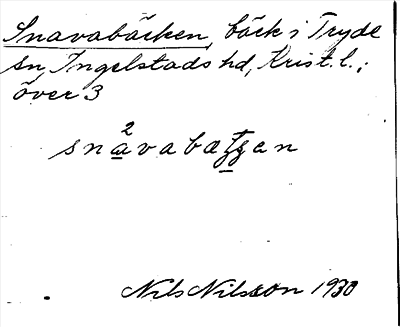 Snavabäcken, bäck i Tryde
sn, Ingelstads hd, Krist. l.;
över 3
2
snavabæ
Nils Nilsson 1930